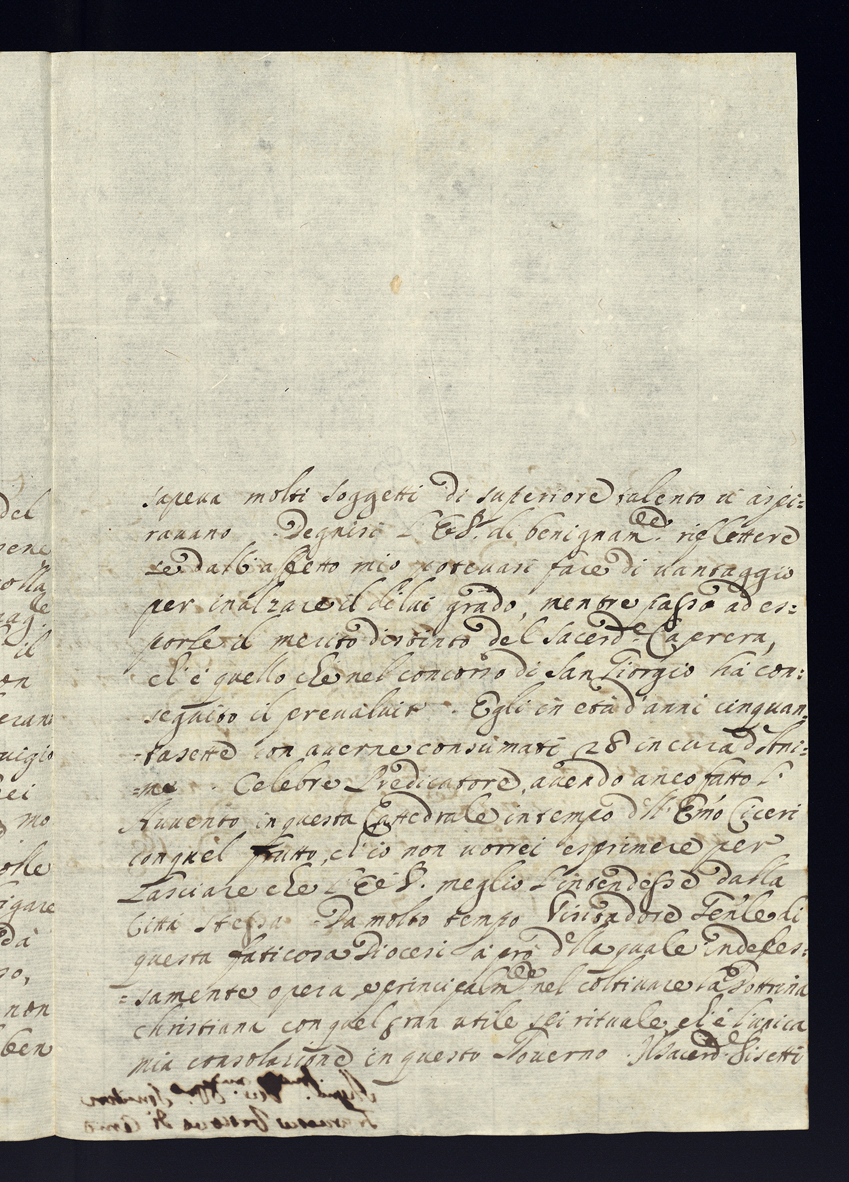 del
sapeua molti soggetti di superiore talento u' aspi=
rauano. Degnisi L'E. V. di benignam.te riflettere
se dall'affetto mio poteuasi fare di uantaggio
per inalzare il di lui grado, mentre passo ad es=
porle il merito distinto del Sacerd.te Caprera,
ch'è quello che nel concorso di San Giorgio hà con=
seguito il preualuit. Egli in età d'anni cinquan=
=tasette con auerne consumati 28 in cura d'Ani=
=me. Celebre Predicatore, auendo anco fatto l'
Auuento in questa Cattedrale in tempo dell' Em̃o Ciceri
con quel frutto, ch'io non uorrei esprimere per
lasciare che l'E. V. meglio l'intendesse dalla
Città stessa. Da molto tempo Visitadore Gen'le di
questa faticosa Diocesi à prò della quale indefes=
=samente opera, e principalm.te nel coltiuare la Dottrina
Christiana con quel gran utile spirituale, ch'è l'unica
mia consolazione in questo Gouerno. Il Sacerd.te Sisetti
il
on
mo
dà
non
ben